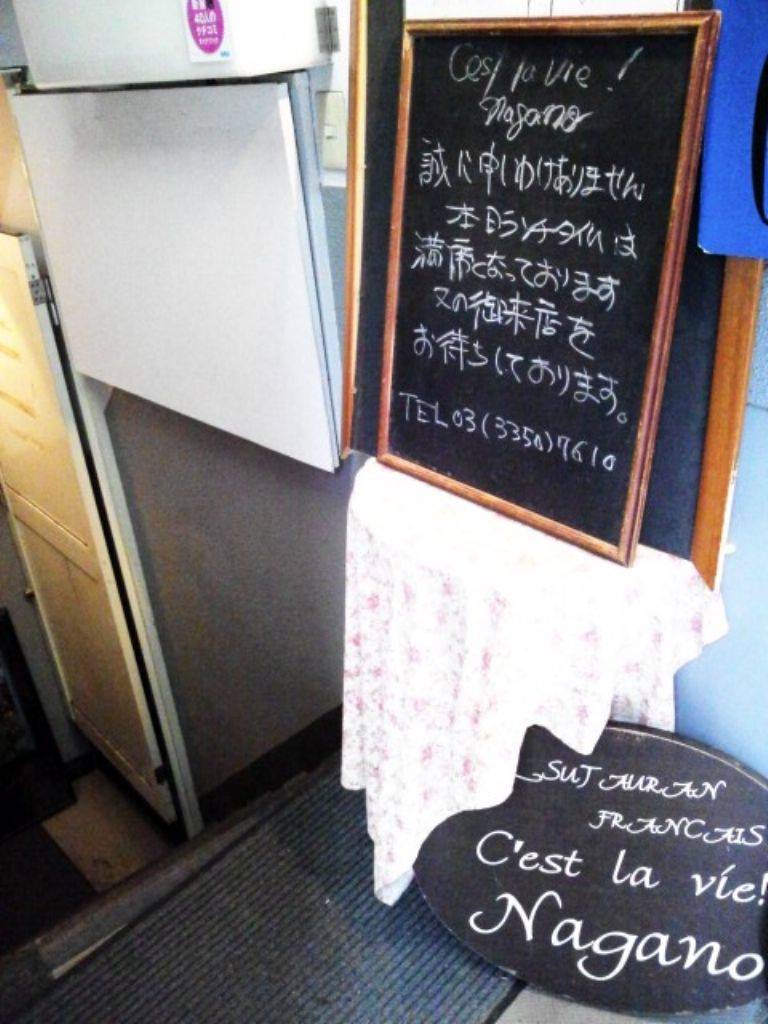 C'est la vie!
Nagano
誠に申しわけありません
本日ランチタイムは
満席となっております
又の御来店を
お待ちしております。
TEL 03(3350)7610
FRANCAIS
C'est la vie!
Nagano